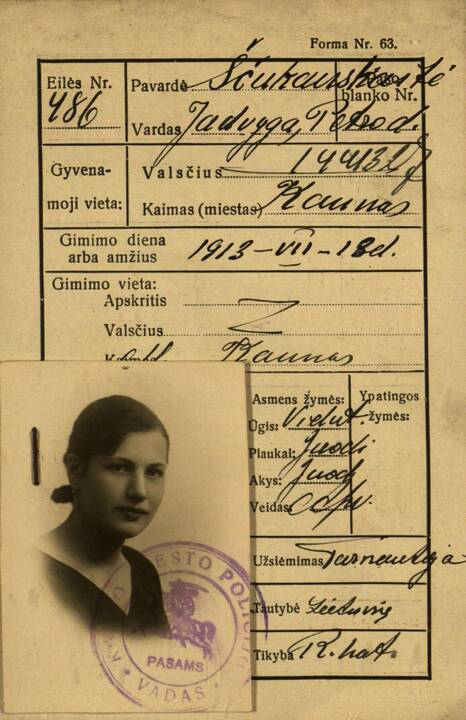 Forma Nr. 63.
Eilės Nr. 486
Pavardė Ščukauskaitė
blanko Nr. 144132
Vardas Jadvyga, Petro d.
Gyvena-
moji vieta:
Valsčius
Kaimas (miestas) Kaunas
Gimimo diena
arba amžius 1913-VII-13d.
Gimimo vieta:
Apskritis
Valsčius
Kaunas
Asmens žymės:
Ūgis: Vidut.
Plaukai: Juodi
Akys: Juod
Veidas:
Ypatingos
žymės:
Užsiėmimas Tarnautoja
Tautybė Lietuvių
Tikyba R. kat.
MIESTO POLICIJO
PASAMS
VADAS